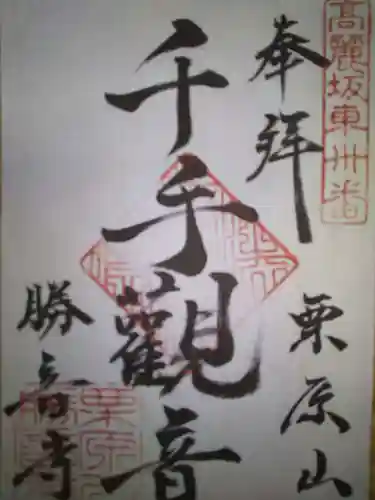 高麗坂東卅番
奉拜
栗原山
千手觀音
勝音寺